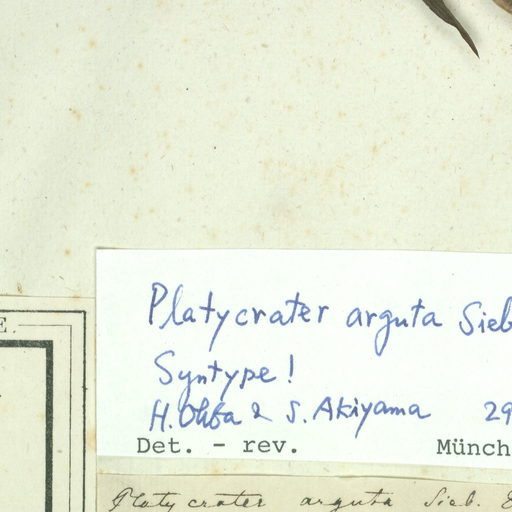 Platycrater arguta Sieb
Syntype!
H. Ohba & S. Akiyama 29
Det. - rev. Münch
E.
Platycrater arguta Sieb.